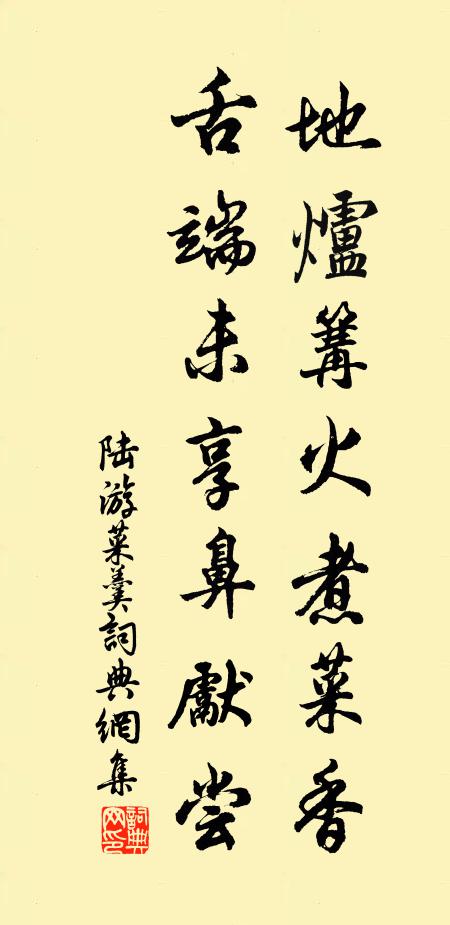 地爐篝火煮菜香
舌端未享鼻獻尝
陆游菜羹詞典網集
詞典网印